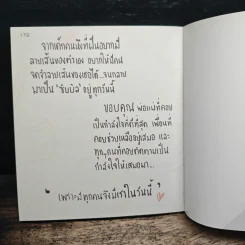 170
จากเด็กคนนึงที่ฝันอยากมี
ลายเส้นของตัวเอง อยากให้มีคน
จดจำลายเส้นของเธอได้..จนกลาย
มาเป็น "ซับบิล" อยู่ ทุกวันนี้
ขอบคุณ พ่อแม่ที่คอย
เป็นกำลังใจที่ดีที่สุด เพื่อนที่
คอยช่วยเหลืออยู่เสมอ และ
ทุกๆคนที่คอยติดตามเป็น
กำลังใจให้เสมอมา...
"เพราะมีทุกคนจึงมีเราในวันนี้"